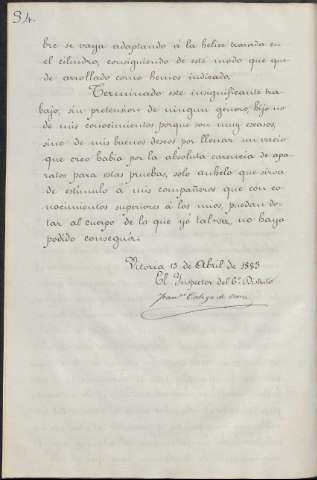 34.
bre se vaya adaptando á la helice trazada en
el cilindro, consiguiendo de este modo que que-
de arrollado como hemos indicado.
Terminado este insignificante tra-
bajo, sin pretension de ningun genero, hijo no
de mis conocimientos porque son muy escasos,
sino de mis buenos deseos por llenar un vacio
que creo habia por la absoluta carencia de apa-
ratos para estas pruebas, solo anhelo que sirva
de estímulo á mis compañeros que con co-
nocimientos superiores á los mios, puedan do-
tar al cuerpo de lo que yó talvez, no haya
podido conseguir.
Vitoria 15 de Abril de 1883
El Inspector del 6º Distrito